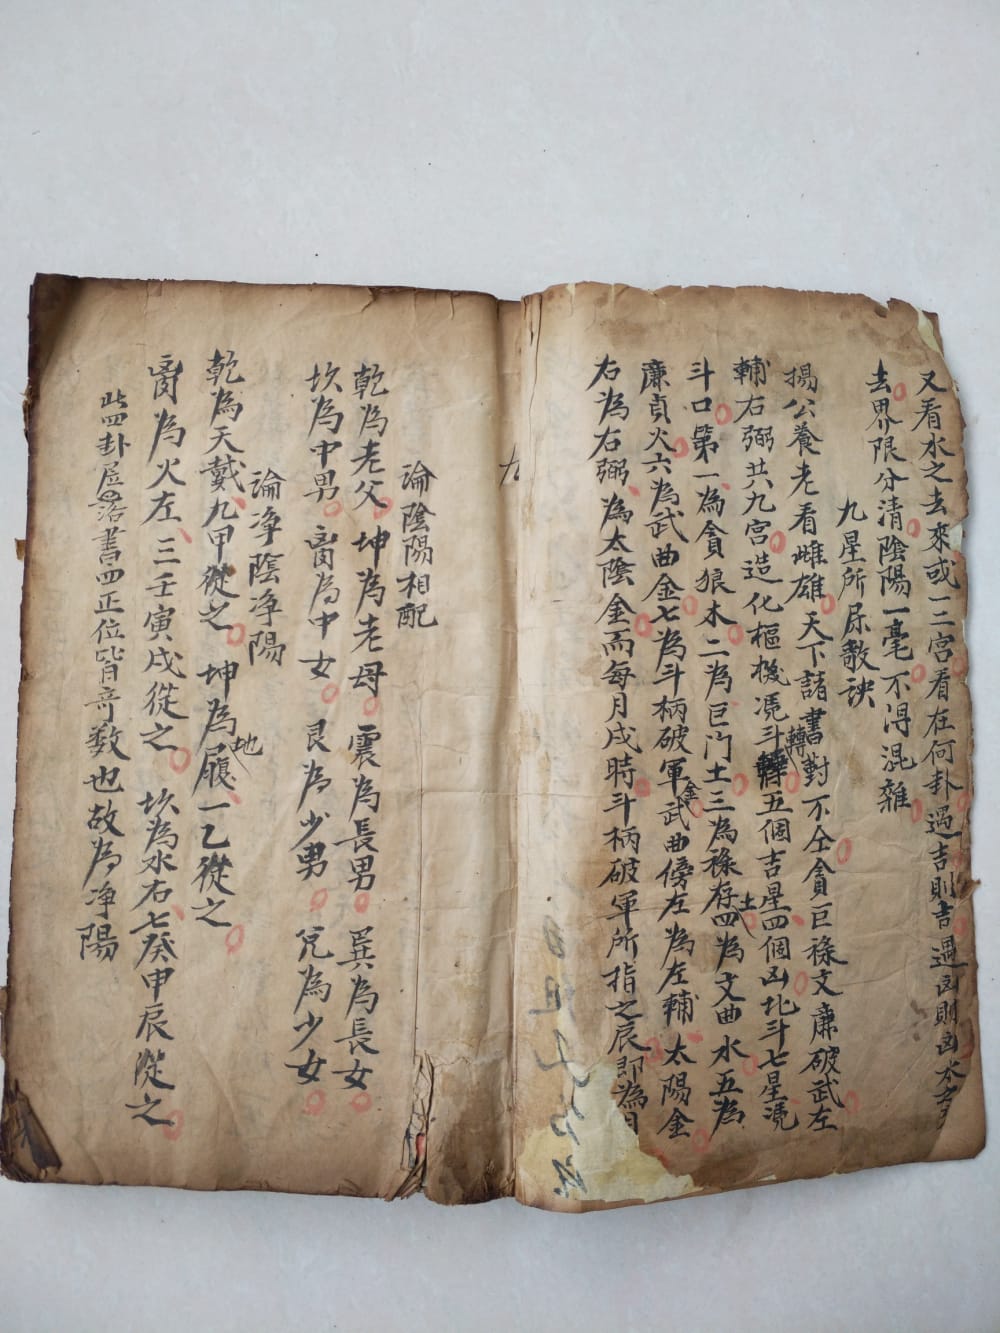 又看水之去來或一二宮看在何卦遇吉則吉遇凶則凶水
去界限分清陰陽一毫不淂混雜
九星所屬敷訣
楊公養老看雌雄天下諸書對不仝貪巨祿文廉破武左
輔右弼共九宮造化樞機憑斗轉五個吉星四個凶北斗七星憑
斗口第一為貪狼木二為巨門土三為祿存土四為文曲水五為
廉貞火六為武曲金七為斗柄破軍金武曲傍左為左輔太陽金
右為右弼為太陰金而每月戌時斗柄破軍所指之辰即為月
論陰陽相配
乾為老父坤為老母震為長男巽為長女
坎為中男离為中女艮為少男兌為少女
論净陰净陽
乾為天戴九甲從之坤為地履一乙從之
离為火左三壬寅戌從之坎為水右七癸申辰從之
此四卦居洛書四正位皆奇数也故為净陽